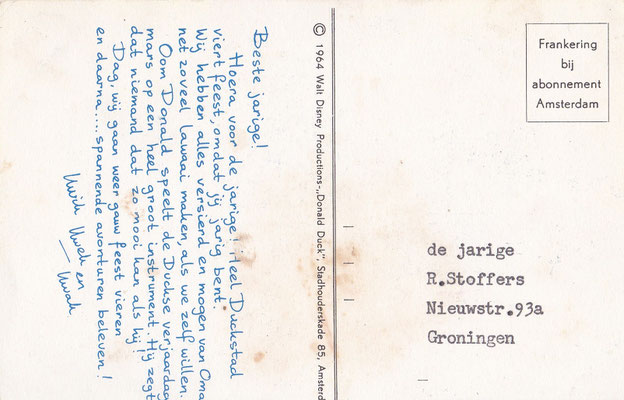 Beste jarige!
Hoera voor de jarige! Heel Duckstad
viert feest, omdat jij jarig bent.
Wij hebben alles versierd en mogen van Oma
net zoveel lawaai maken, als we zelf willen.
Oom Donald speelt de Duckse verjaardag
mars op een heel groot instrument. Hij zegt
dat niemand dat zo mooi kan als hij!
Dag, wij gaan weer gauw feest vieren
en daarna.... spannende avonturen beleven!
Kwik Kwek en
Kwak
© 1964 Walt Disney Productions-„Donald Duck", Stadhouderskade 85, Amsterd
Frankering
bij
abonnement
Amsterdam
de jarige
R.Stoffers
Nieuwstr.93a
Groningen